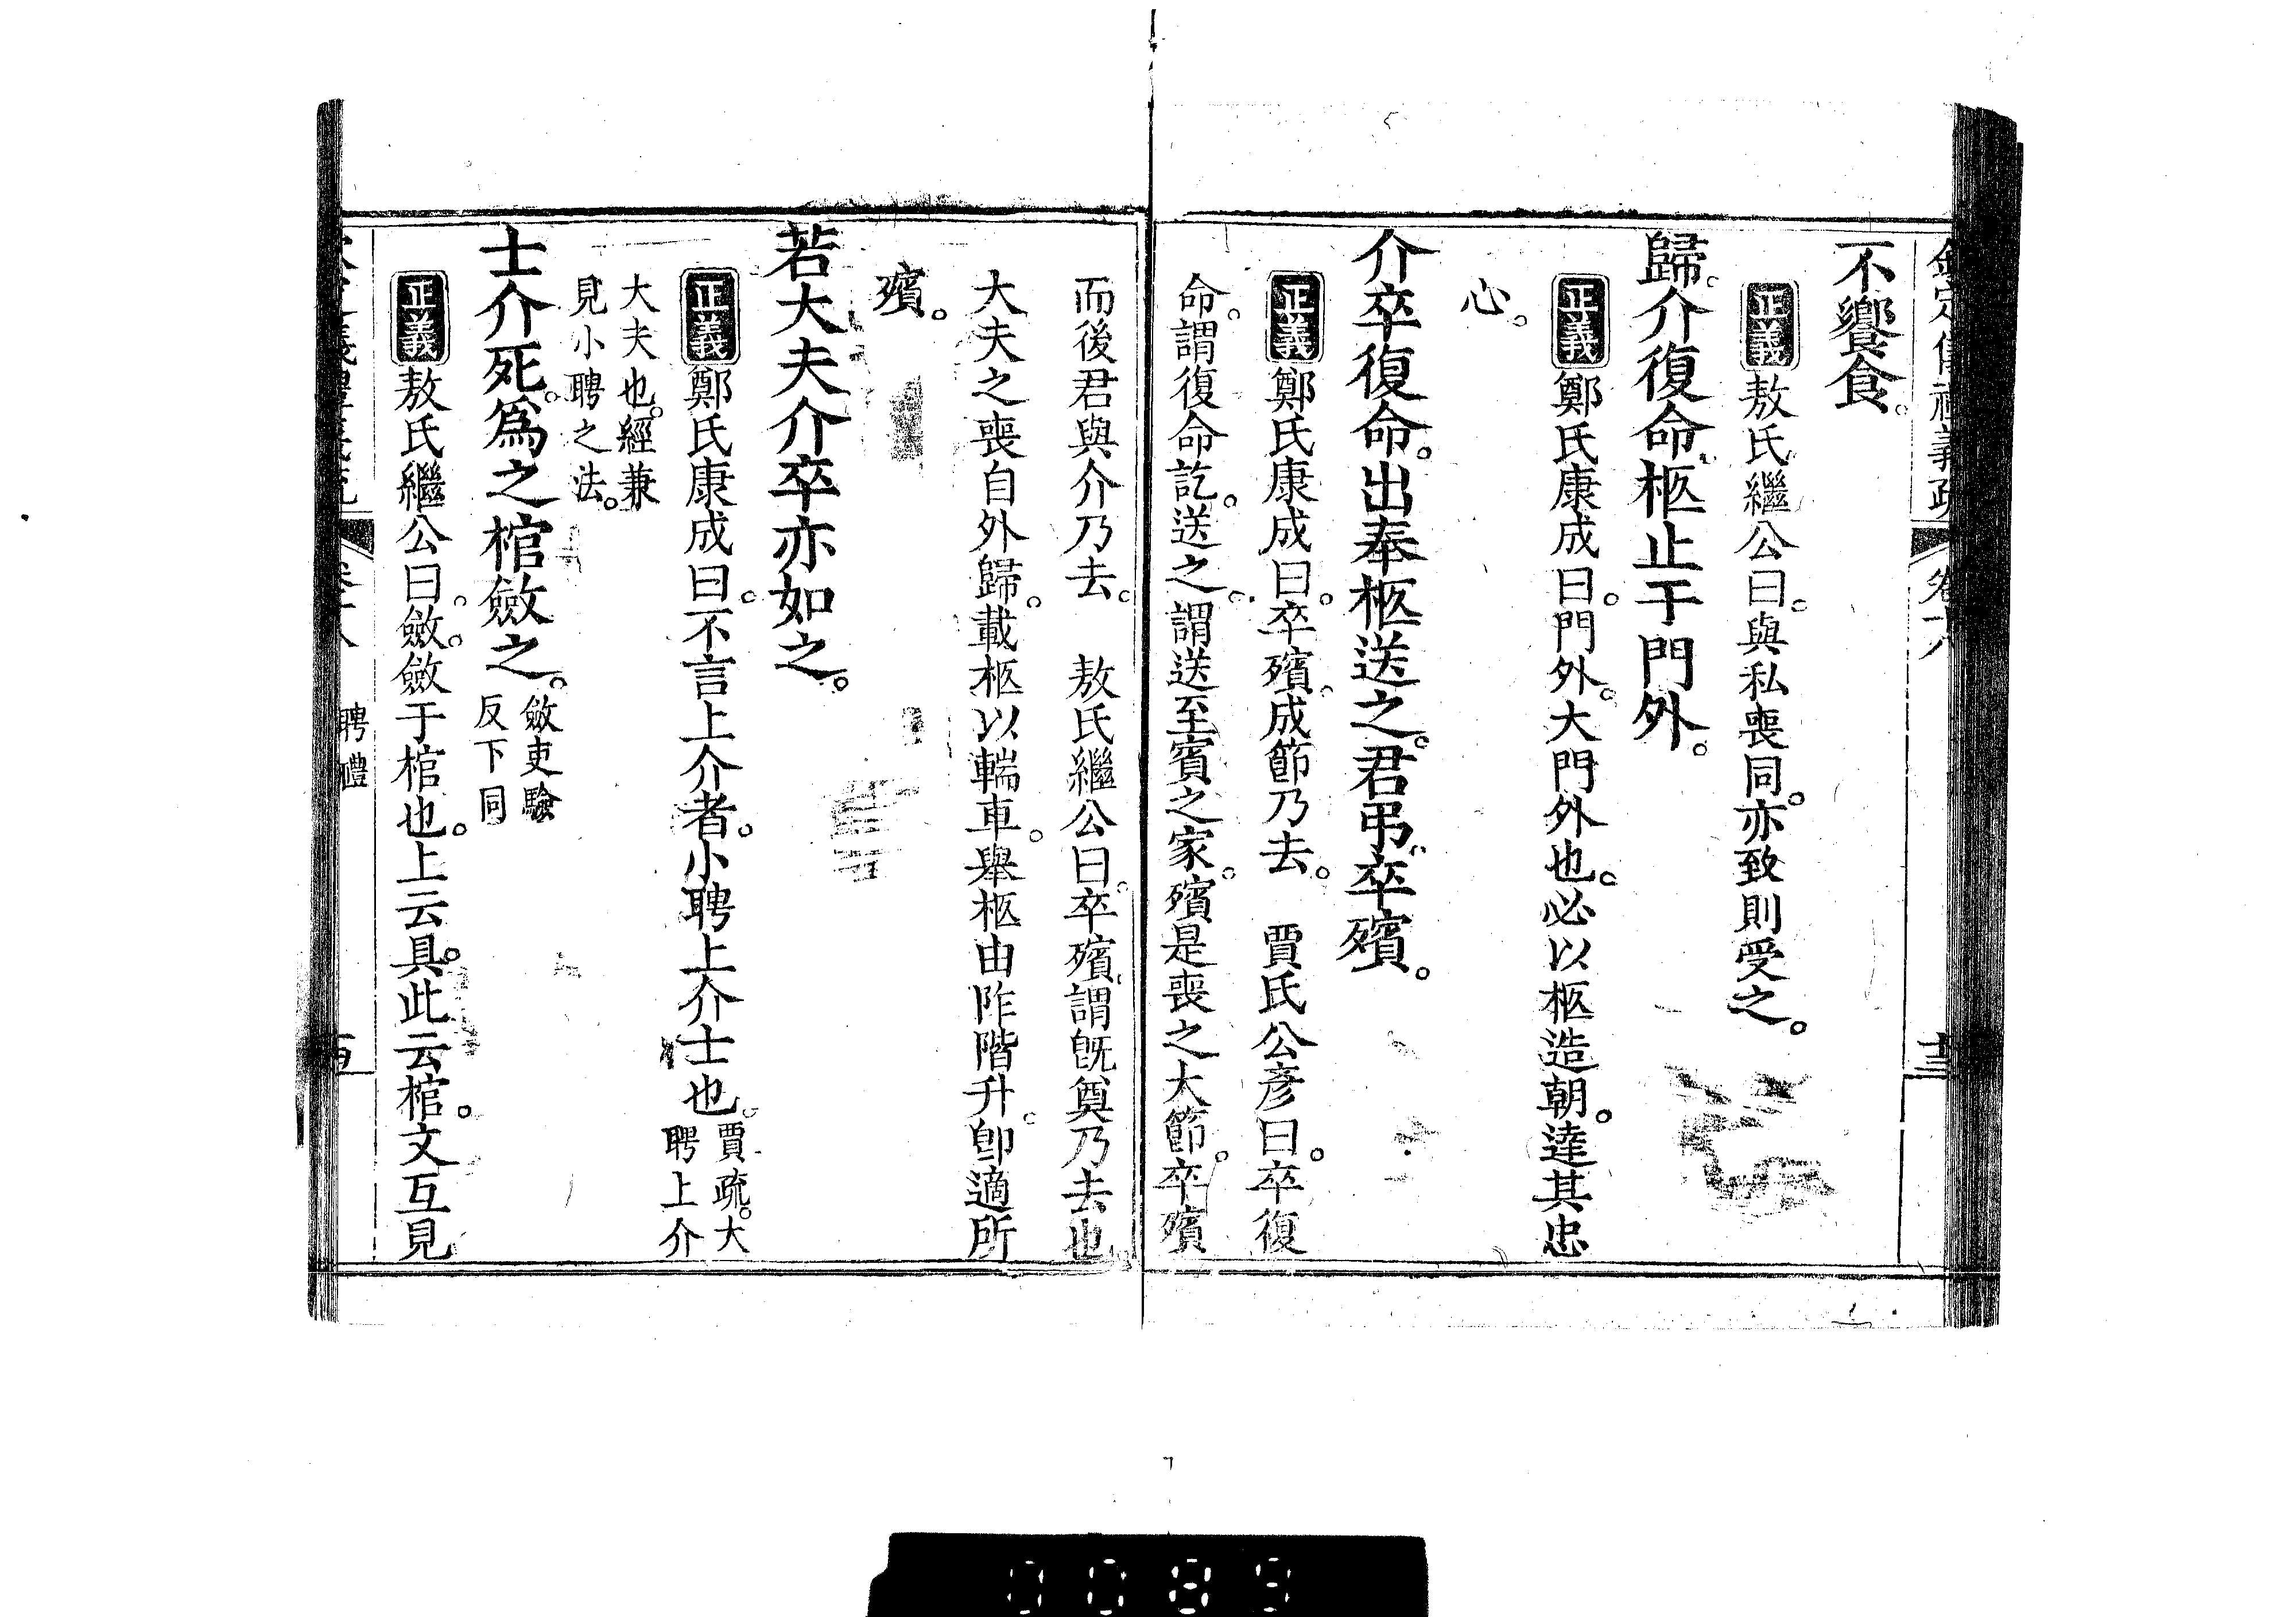 不饗食。
正義敖氏繼公曰。與私喪同。亦致則受之。
歸。介復命。柩止于門外。
正義鄭氏康成曰。門外。大門外也。必以柩造朝。達其忠
心。
介卒復命。出奉柩送之。君弔。卒殯。
正義鄭氏康成曰。卒殯。成節乃去。　賈氏公彦曰。卒復
命。謂復命訖。送之。謂送至賓之家。殯是喪之大節。卒殯
而後君與介乃去。　敖氏繼公曰。卒殯。謂旣奠乃去也。
大夫之喪自外歸。載柩以輲車。舉柩由阼階升。卽適所
殯。
若大夫介卒亦如之。
正義鄭氏康成曰。不言上介者。小聘上介士也。賈疏。大
聘上介
大夫也。經兼
見小聘之法。
士介死。爲之棺斂之。斂吏驗
反下同
正義敖氏繼公曰。斂。斂于棺也。上云具。此云棺。文互見
聘禮